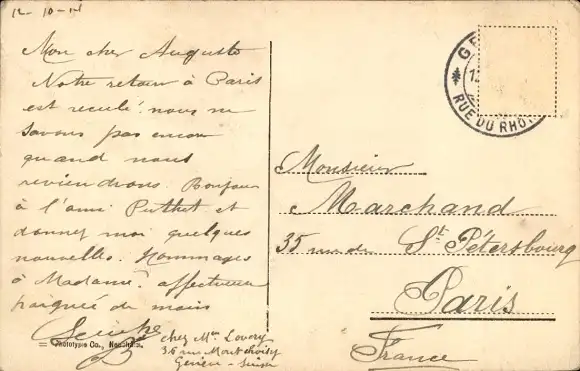 12-10-14
Mon cher Auguste
Notre retour à Paris
est reculé nous ne
savons pas encore
quand nous
reviendrons. Bonjour
à l'ami et
donnez moi quelques
nouvelles. Hommages
à Madame affectueuse
poignée de main
chez Mr
35 rue Montchoisy
Genève - Suisse
Phototypie Co., Neuchâtel.
RUE DU RHÔ
Monsieur
Marchand
35 rue de St. Pétersbourg
Paris
France